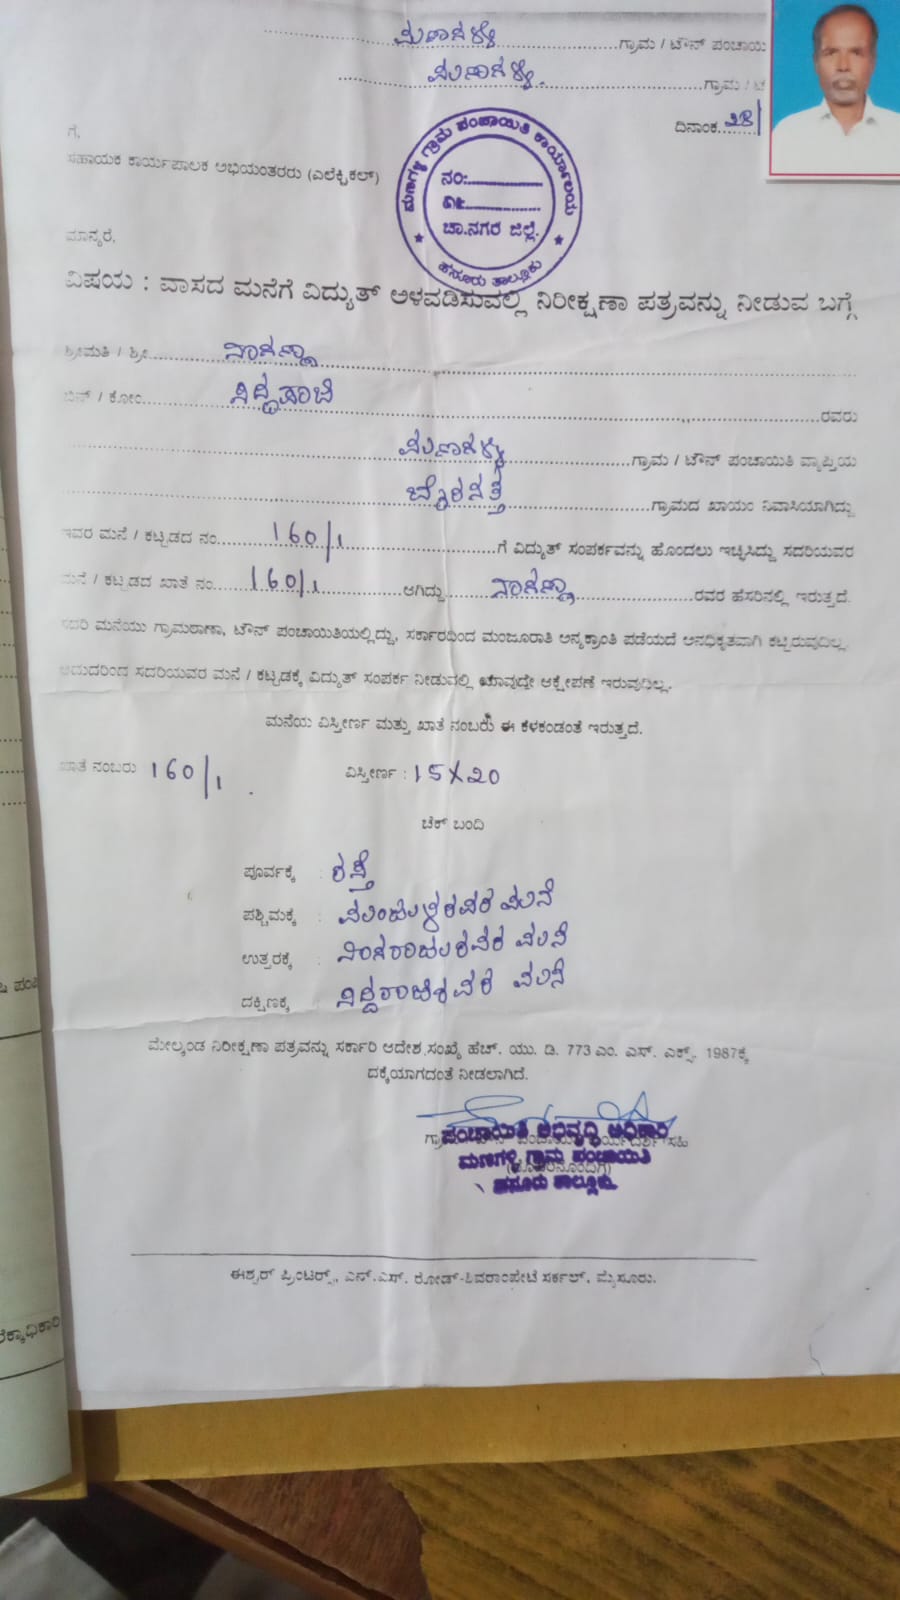 ಮಣಗಳ್ಳಿ ಗ್ರಾಮ / ಟೌನ್ ಪಂಚಾಯ
ಮಣಗಳ್ಳಿ ಗ್ರಾಮ / ಟ
ದಿನಾಂಕ 28/
ಗೆ,
ಸಹಾಯಕ ಕಾರ್ಯಪಾಲಕ ಅಭಿಯಂತರರು (ಎಲೆಕ್ಟ್ರಿಕಲ್)
ಮಣಗಳ್ಳಿ ಗ್ರಾಮ ಪಂಚಾಯಿತಿ ಕಾರ್ಯಾಲಯ
ನಂ:
ದಿ:
ಚಾ.ನಗರ ಜಿಲ್ಲೆ.
ಹನೂರು ತಾಲ್ಲೂಕು
ಮಾನ್ಯರೆ,
ವಿಷಯ : ವಾಸದ ಮನೆಗೆ ವಿದ್ಯುತ್ ಅಳವಡಿಸುವಲ್ಲಿ ನಿರೀಕ್ಷಣಾ ಪತ್ರವನ್ನು ನೀಡುವ ಬಗ್ಗೆ
ಶ್ರೀಮತಿ / ಶ್ರೀ ನಾಗಣ್ಣ
ಬಿನ್ / ಕೋಂ ಸಿದ್ದರಾಜು ರವರು
ಮಣಗಳ್ಳಿ ಗ್ರಾಮ / ಟೌನ್ ಪಂಚಾಯಿತಿ ವ್ಯಾಪ್ತಿಯ
ಬೈರನತ್ತ ಗ್ರಾಮದ ಖಾಯಂ ನಿವಾಸಿಯಾಗಿದ್ದು
ಇವರ ಮನೆ / ಕಟ್ಟಡದ ನಂ 160/1 ಗೆ ವಿದ್ಯುತ್ ಸಂಪರ್ಕವನ್ನು ಹೊಂದಲು ಇಚ್ಛಿಸಿದ್ದು ಸದರಿಯವರ
ಮನೆ / ಕಟ್ಟಡದ ಖಾತೆ ನಂ 160/1 ಆಗಿದ್ದು ನಾಗಣ್ಣ ರವರ ಹೆಸರಿನಲ್ಲಿ ಇರುತ್ತದೆ.
ಸದರಿ ಮನೆಯು ಗ್ರಾಮಠಾಣಾ, ಟೌನ್ ಪಂಚಾಯಿತಿಯಲ್ಲಿದ್ದು, ಸರ್ಕಾರಥಿಂದ ಮಂಜೂರಾತಿ ಅನ್ಯಕ್ರಾಂತಿ ಪಡೆಯದೆ ಅನಧಿಕೃತವಾಗಿ ಕಟ್ಟಿರುವುದಿಲ್ಲ.
ಆದುದರಿಂದ ಸದರಿಯವರ ಮನೆ / ಕಟ್ಟಡಕ್ಕೆ ವಿದ್ಯುತ್ ಸಂಪರ್ಕ ನೀಡುವಲ್ಲಿ ಯಾವುದೇ ಆಕ್ಷೇಪಣೆ ಇರುವುದಿಲ್ಲ.
ಮನೆಯ ವಿಸ್ತೀರ್ಣ ಮತ್ತು ಖಾತೆ ನಂಬರು ಈ ಕೆಳಕಂಡಂತೆ ಇರುತ್ತದೆ.
ಖಾತೆ ನಂಬರು 160/1 . ವಿಸ್ತೀರ್ಣ : 15X20
ಚೆಕ್ ಬಂದಿ
ಪೂರ್ವಕ್ಕೆ : ರಸ್ತೆ
ಪಶ್ಚಿಮಕ್ಕೆ : ಮನೆ
ಉತ್ತರಕ್ಕೆ : ನಿಂಗರಾಜುರವರ ಮನೆ
ದಕ್ಷಿಣಕ್ಕೆ : ಸಿದ್ದರಾಜುರವರ ಮನೆ
ಮೇಲ್ಕಂಡ ನಿರೀಕ್ಷಣಾ ಪತ್ರವನ್ನು ಸರ್ಕಾರಿ ಆದೇಶ ಸಂಖ್ಯೆ ಹೆಚ್. ಯು. ಡಿ. 773 ಎಂ. ಎಸ್. ಎಕ್ಸ್. 1987ಕ್ಕೆ
ದಕ್ಕೆಯಾಗದಂತೆ ನೀಡಲಾಗಿದೆ.
ಪಂಚಾಯಿತಿ ಅಭಿವೃದ್ಧಿ ಅಧಿಕಾರಿ
ಮಣಗಳ್ಳಿ ಗ್ರಾಮ ಪಂಚಾಯಿತಿ
ಹನೂರು ತಾಲ್ಲೂಕು.
ಈಶ್ವರ್ ಪ್ರಿಂಟರ್ಸ್, ಎನ್.ಎಸ್. ರೋಡ್-ಶಿವರಾಂಪೇಟೆ ಸರ್ಕಲ್, ಮೈಸೂರು.